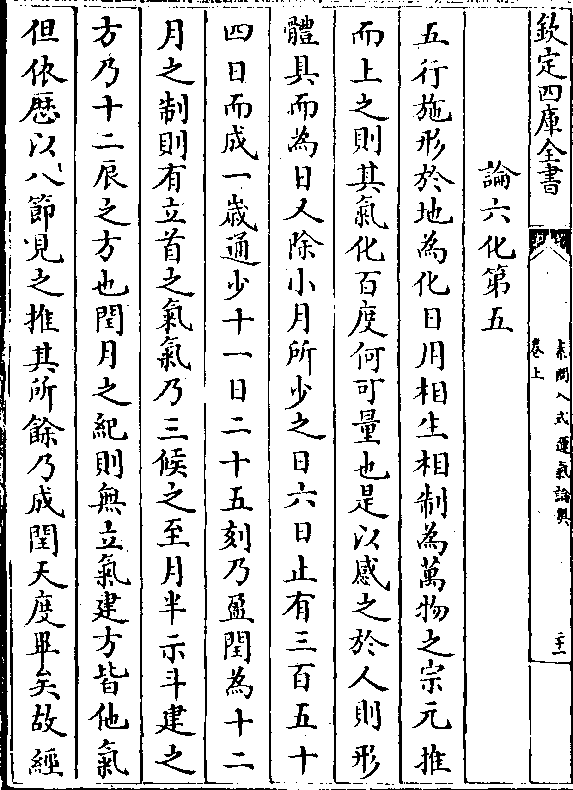 欽定四庫全書
素問入式運氣論奥
卷上
二十一
論六化第五
五行施形於地為化日用相生相制為萬物之宗元推
而上之則其氣化百度何可量也是以感之於人則形
體具而為日又除小月所少之日六日止有三百五十
四日而成一歲通少十一日二十五刻乃盈閏為十二
月之制則有立首之氣氣乃三候之至月半示斗建之
方乃十二辰之方也閏月之紀則無立氣建方皆他氣
但依歴以八節見之推其所餘乃成閏天度畢矣故經